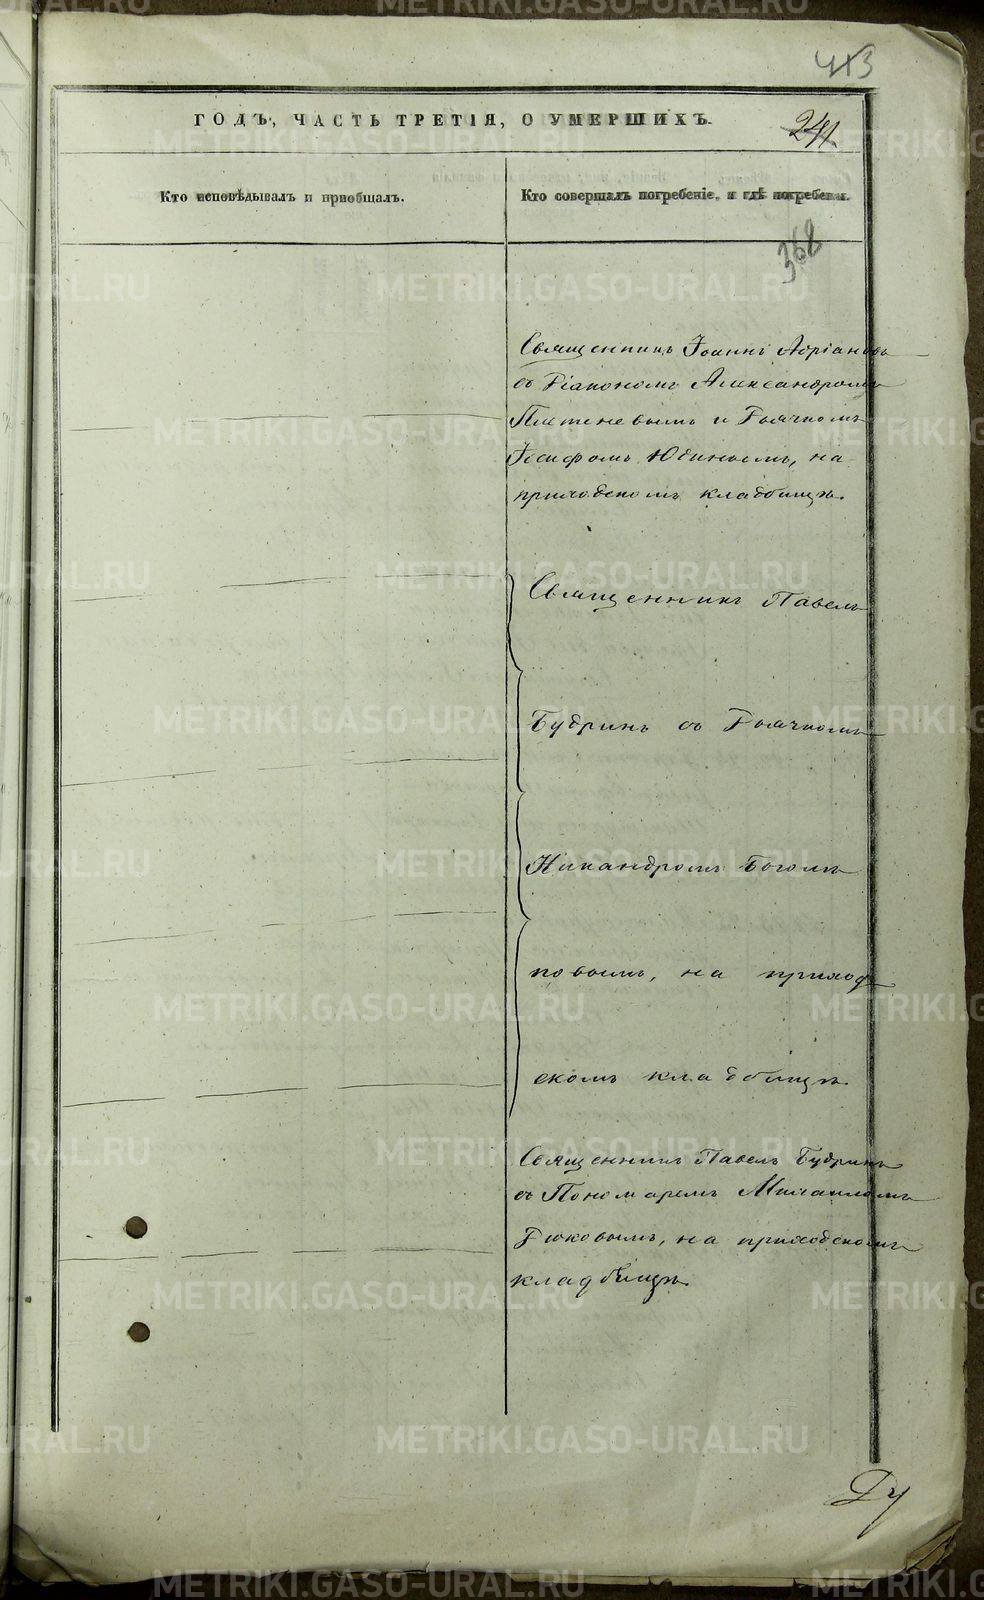 413
ГОДЪ, ЧАСТЬ ТРЕТІЯ, О УМЕРШИХЪ.
241.
Кто исповѣдывалъ и пріобщалъ.
Кто совершалъ погребеніе, и гдѣ погребены.
368
Священникъ Іоаннъ Адріановъ
съ Діакономъ Александромъ
Плетневымъ и Дьячкомъ
Іосифомъ Юдинымъ, на
приходскомъ кладбищѣ.
Священникъ Павелъ
Будринъ съ Дьячкомъ
Никандромъ Богом
повымъ, на приход
скомъ кладбищѣ.
Священникъ Павелъ Будринъ
съ Пономаремъ Михаиломъ
Рюковымъ, на приходскомъ
кладбищѣ.
METRIKI.GASO-URAL.RU